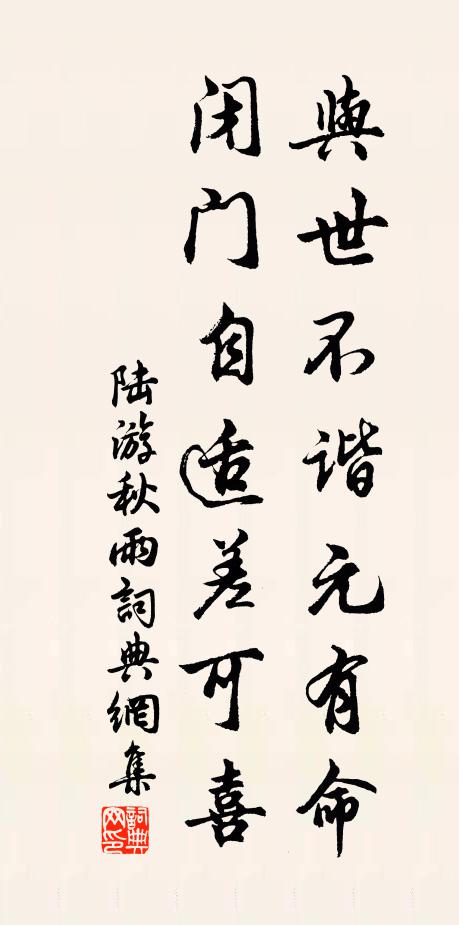 與世不谐元有命
闭门自适差可喜
陆游秋雨詞典網集
詞典网印